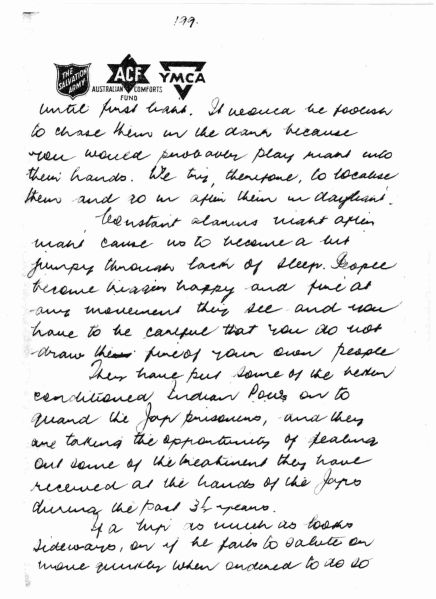 199.
THE SALVATION ARMY
ACF
AUSTRALIAN COMFORTS FUND
YMCA
until first light. It would be foolish
to chase them in the dark because
you would probably play right into
their hands. We try, therefore, to localise
them and go in after them in daylight.
Constant alarms night after
night cause us to become a bit
jumpy through lack of sleep. People
become trigger happy and fire at
any movement they see and you
have to be careful that you do not
draw the fire of your own people
They have put some of the better
conditioned Indian POWs on to
guard the Jap prisoners, and they
are taking the opportunity of dealing
out some of the treatment they have
received at the hands of the Japs
during the past 3½ years.
If a Nip as much as looks
sideways, or if he fails to salute or
move quickly when ordered to do so